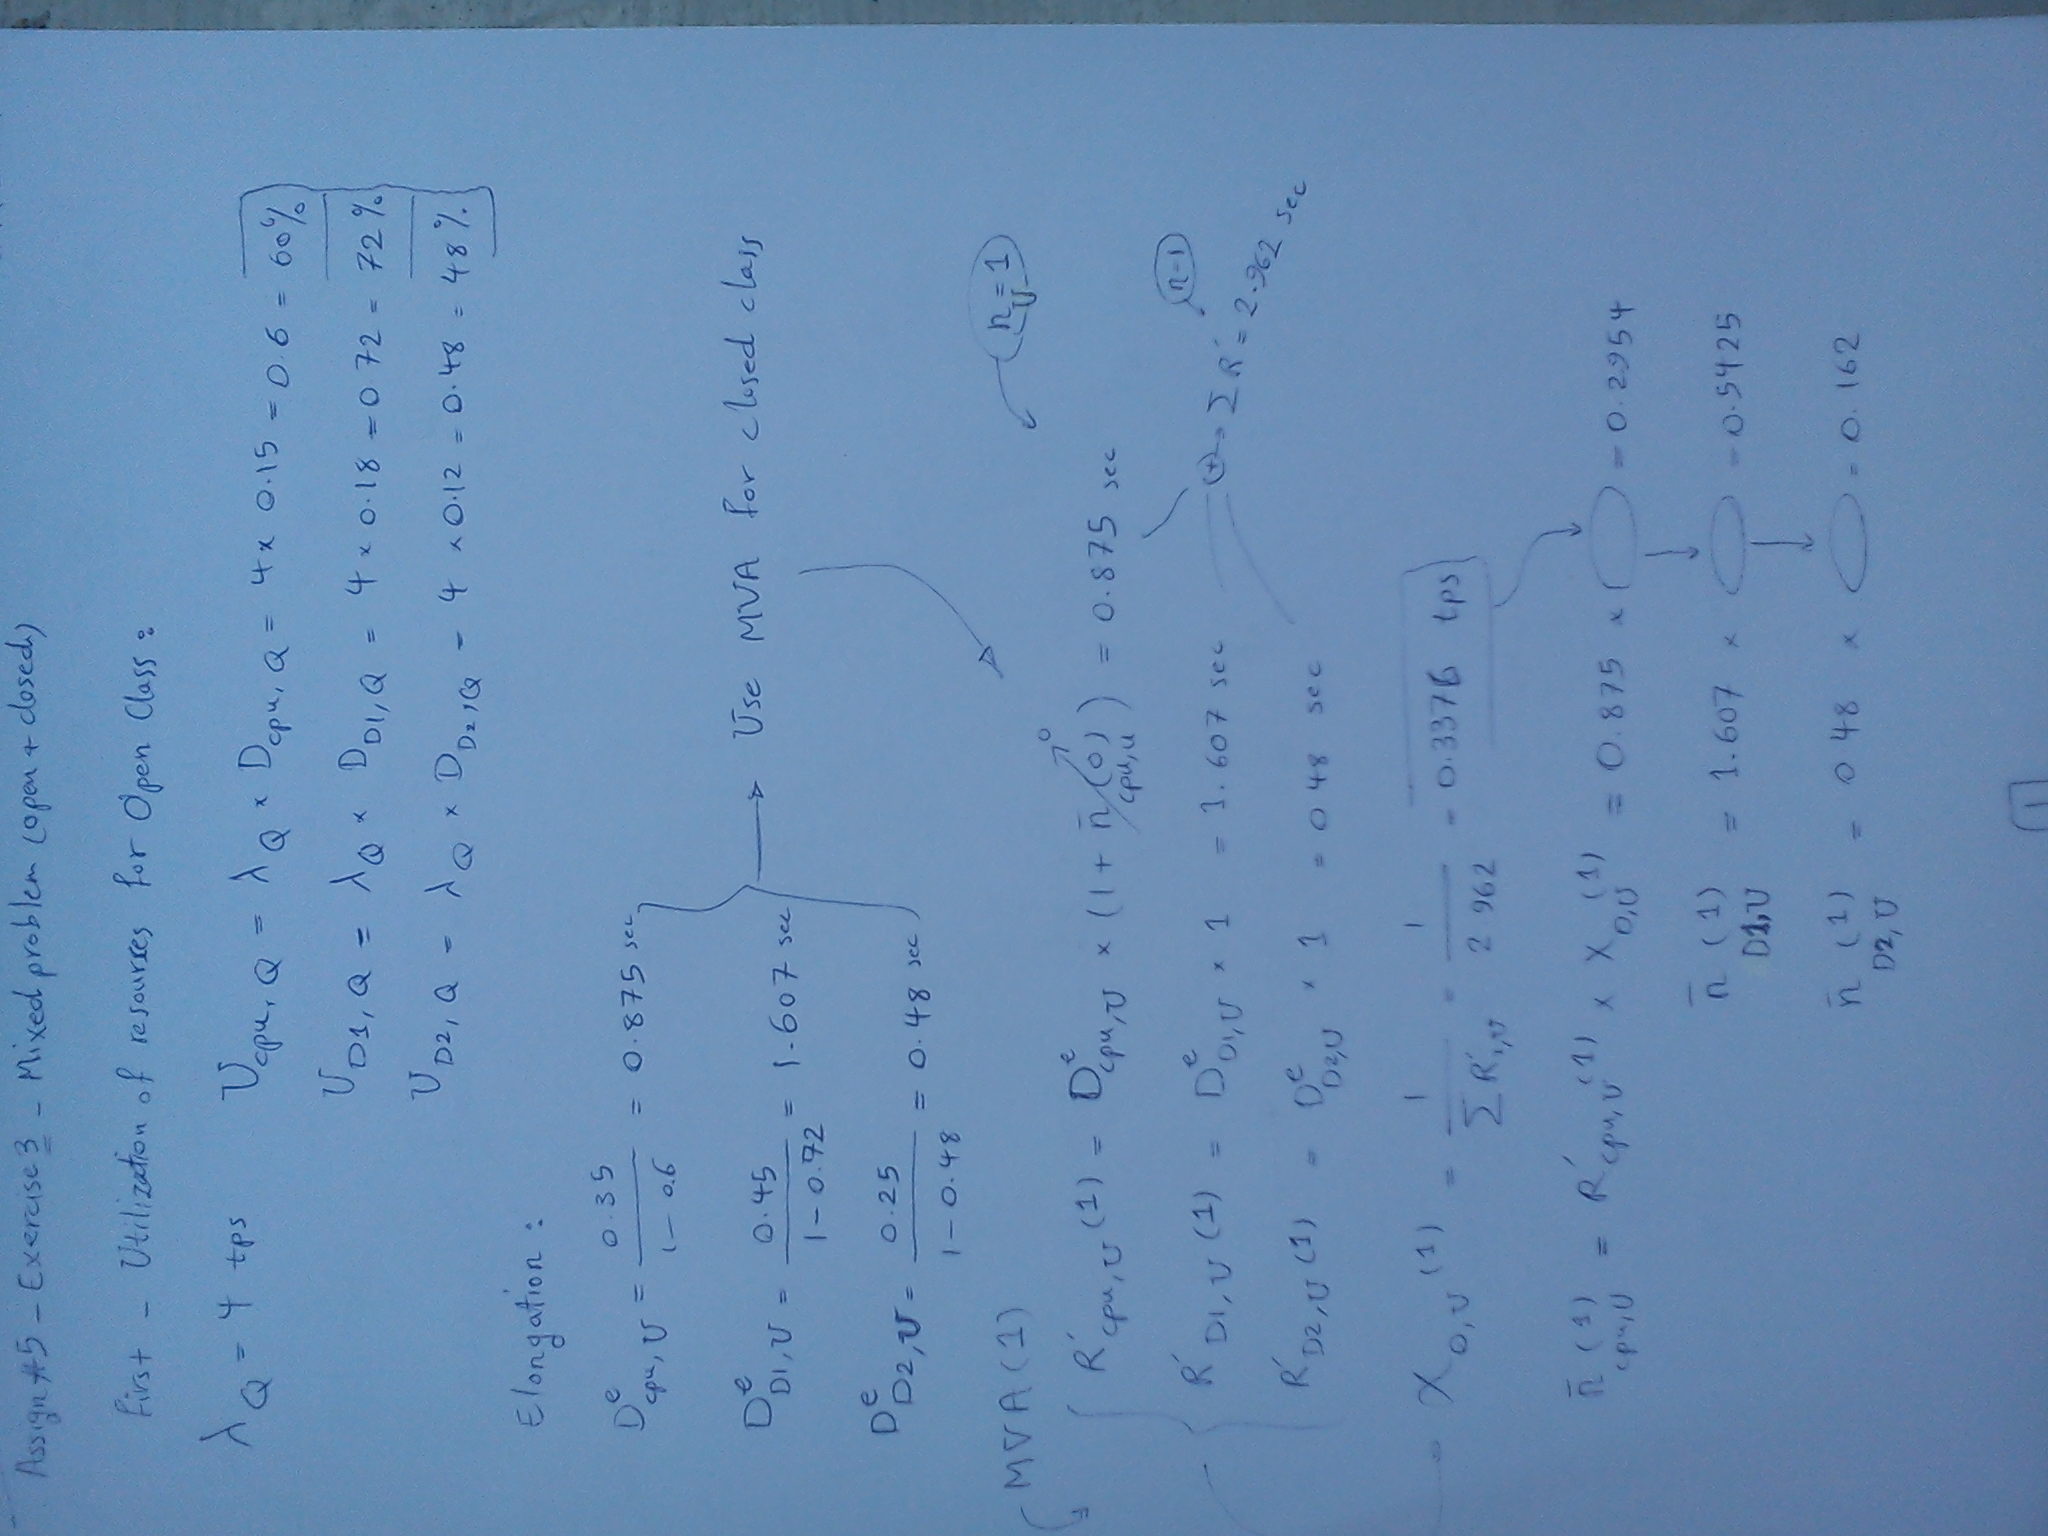 Assign #5 - Exercise 3 - Mixed problem (open + closed)
First - Utilization of resourses for Open Class :
λ_Q = 4 tps
U_cpu, Q = λ_Q × D_cpu, Q = 4 × 0.15 = 0.6 = 60%
U_D1, Q = λ_Q × D_D1, Q = 4 × 0.18 = 0 72 = 72%
U_D2, Q = λ_Q × D_D2, Q = 4 × 0.12 = 0.48 = 48%
Elongation :
D^e_cpu, U = 0.35 / (1 - 0.6) = 0.875 sec
D^e_D1, U = 0.45 / (1 - 0.72) = 1.607 sec
→ Use MVA for closed class
D^e_D2, U = 0.25 / (1 - 0.48) = 0.48 sec
MVA (1)
n_U = 1
R'_cpu, U (1) = D^e_cpu, U × (1 + n̄_cpu, u (0)) = 0.875 sec
0
R'_D1, U (1) = D^e_D1, U × 1 = 1.607 sec
n=1
(+) → Σ R' = 2.962 sec
R'_D2, U (1) = D^e_D2, U × 1 = 0 48 sec
X_0, U (1) = 1 / Σ R'_i, U = 1 / 2 962 = 0.3376 tps
n̄_cpu, U (1) = R'_cpu, U (1) × X_0, U (1) = 0.875 × = 0.2954
n̄_D1, U (1) = 1.607 × = 0.5425
n̄_D2, U (1) = 0 48 × = 0.162
1